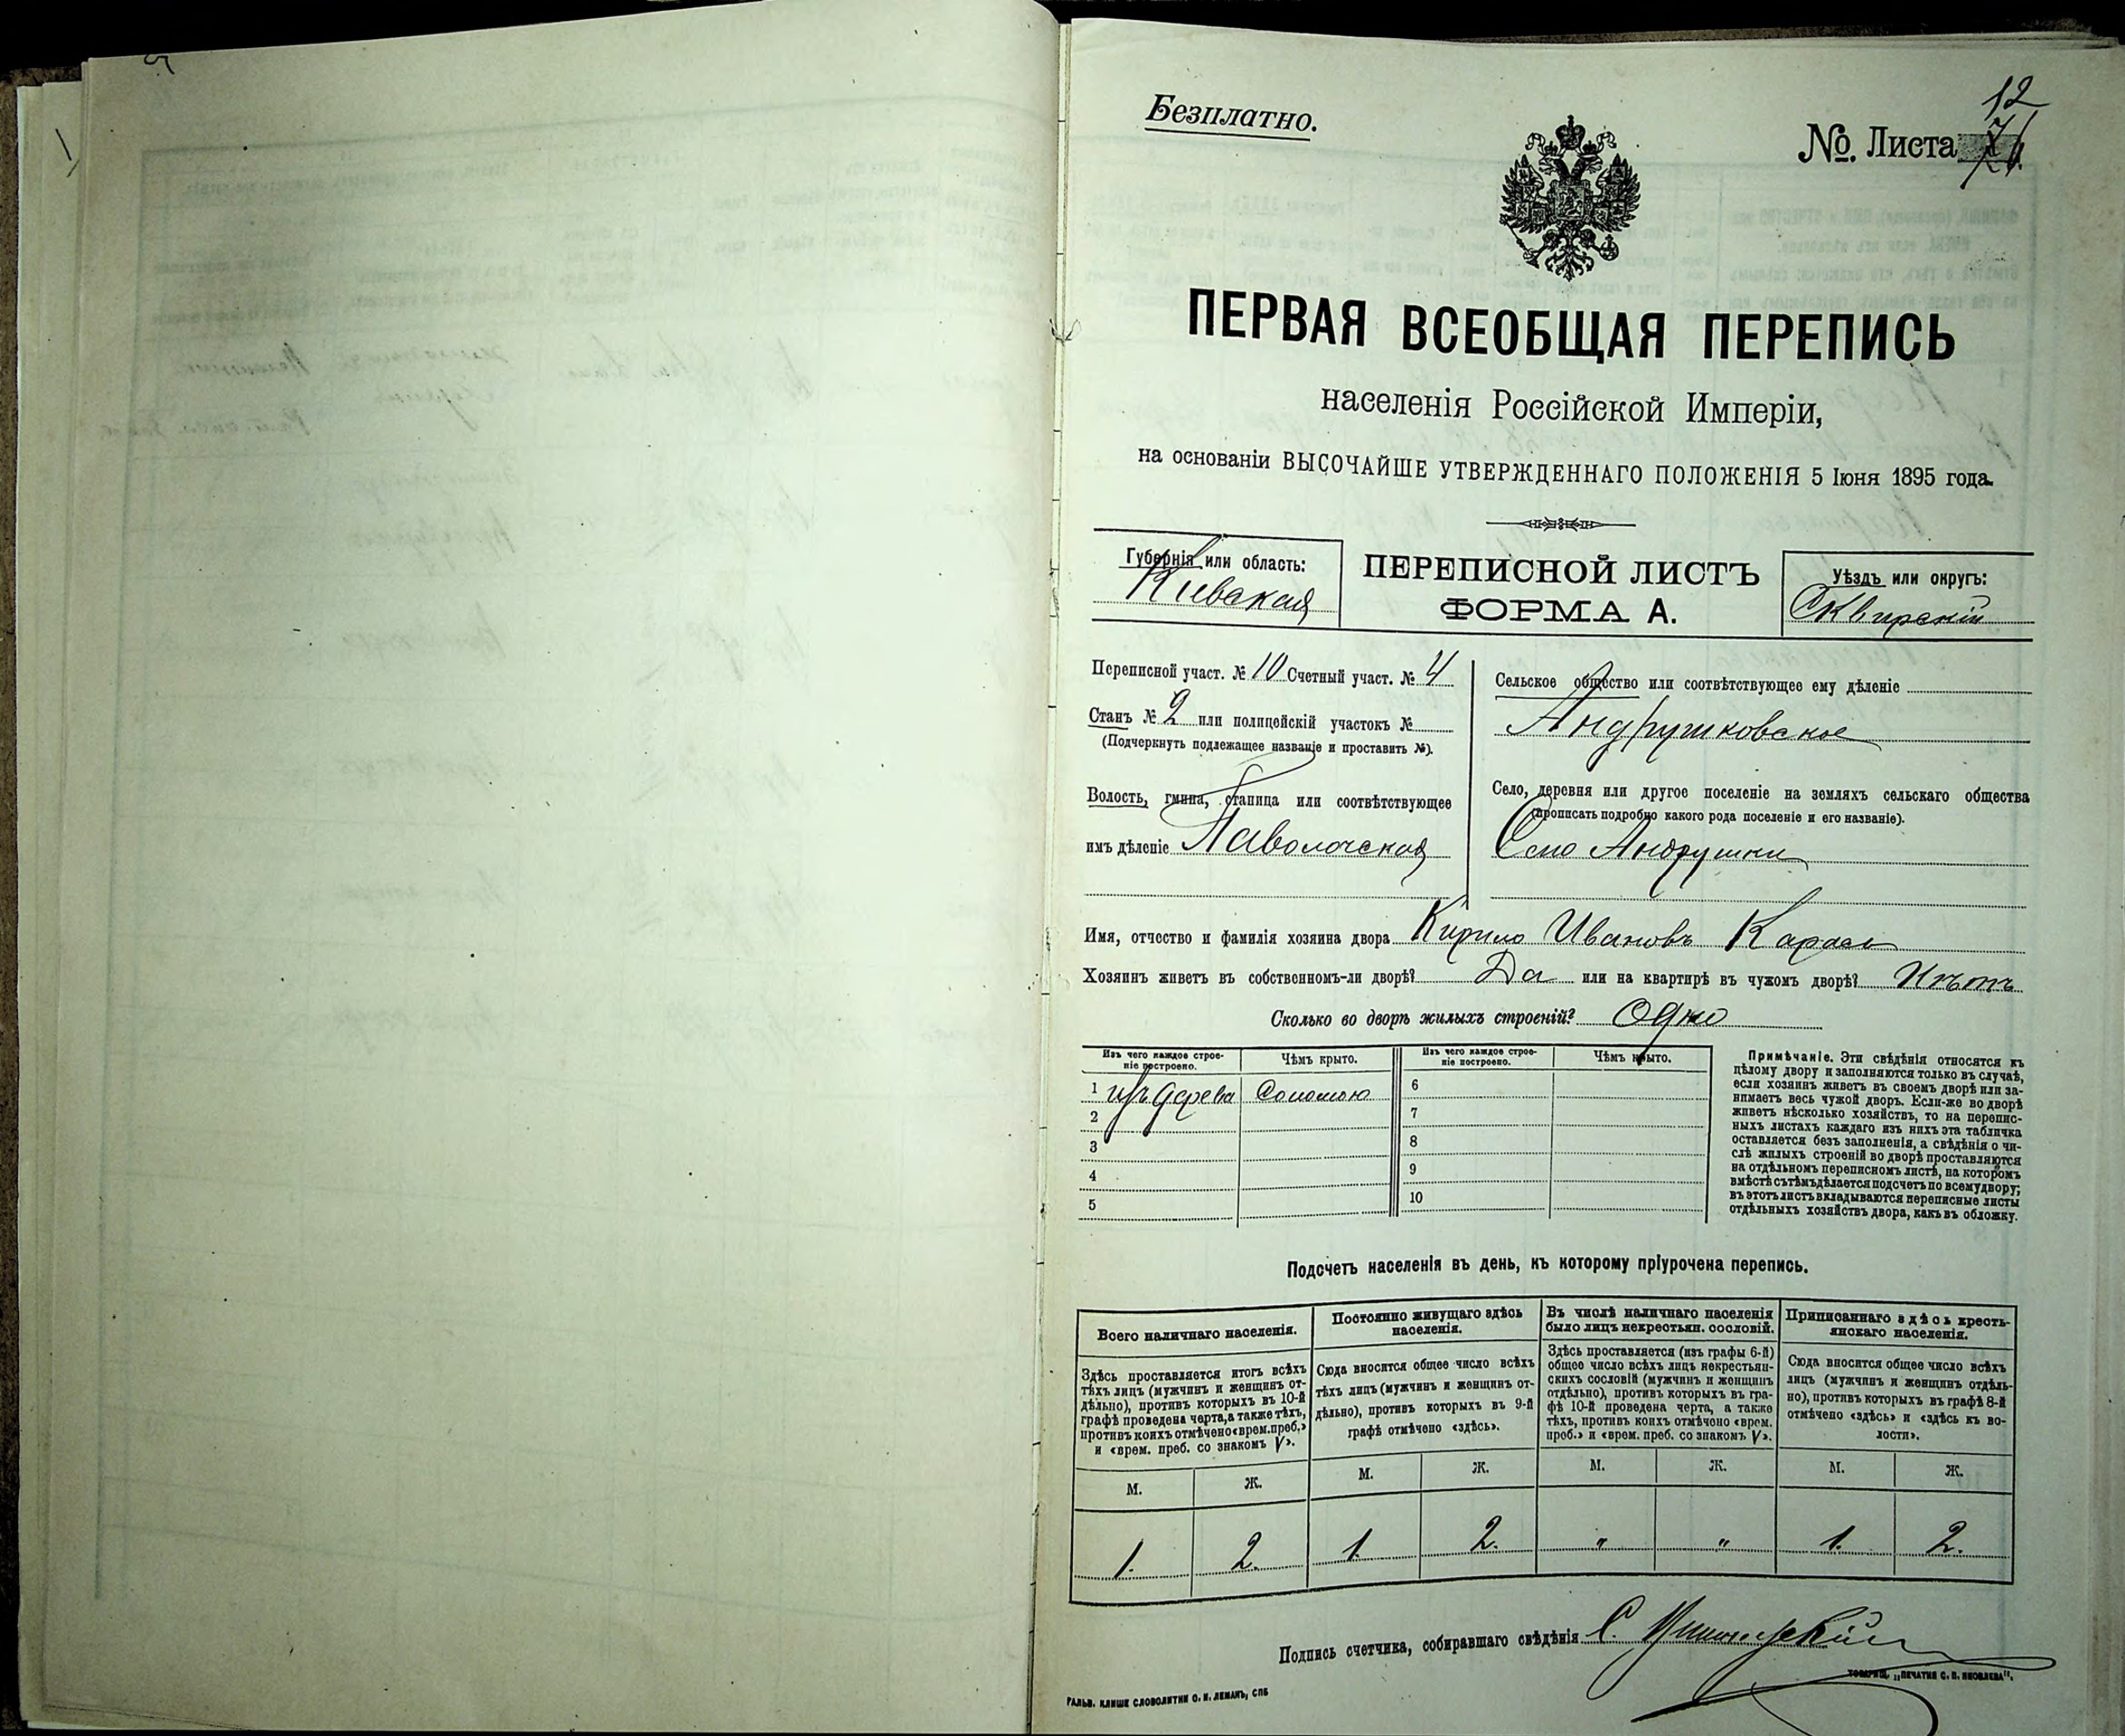 Безплатно.
12
№. Листа
ПЕРВАЯ ВСЕОБЩАЯ ПЕРЕПИСЬ
населенія Россійской Имперіи,
на основаніи ВЫСОЧАЙШЕ УТВЕРЖДЕННАГО ПОЛОЖЕНІЯ 5 Іюня 1895 года.
Губернія или область:
Кіевская
ПЕРЕПИСНОЙ ЛИСТЪ
ФОРМА А.
Уѣздъ или округъ:
Сквирскій
Переписной участ. № 10 Счетный участ. № 4
Станъ № 2 или полицейскій участокъ №
(Подчеркнуть подлежащее названіе и проставить №).
Волость, гмина, станица или соотвѣтствующее
имъ дѣленіе Паволочская
Сельское общество или соотвѣтствующее ему дѣленіе
Андрушковское
Село, деревня или другое поселеніе на земляхъ сельскаго общества
(прописать подробно какого рода поселеніе и его названіе).
Село Андрушки
Имя, отчество и фамилія хозяина двора Кирило Ивановъ Карась
Хозяинъ живетъ въ собственномъ-ли дворѣ? Да или на квартирѣ въ чужомъ дворѣ? Нѣтъ
Сколько во дворѣ жилыхъ строеній? Одно
Изъ чего каждое строе-
ніе построено.
Чѣмъ крыто.
Изъ чего каждое строе-
ніе построено.
Чѣмъ крыто.
1 изъ дерева Соломою
2
3
4
5
6
7
8
9
10
Примѣчаніе. Эти свѣдѣнія относятся къ
цѣлому двору и заполняются только въ случаѣ,
если хозяинъ живетъ въ своемъ дворѣ или за-
нимаетъ весь чужой дворъ. Если-же во дворѣ
живетъ нѣсколько хозяйствъ, то на перепис-
ныхъ листахъ каждаго изъ нихъ эта табличка
оставляется безъ заполненія, а свѣдѣнія о чи-
слѣ жилыхъ строеній во дворѣ проставляются
на отдѣльномъ переписномъ листѣ, на которомъ
вмѣстѣ съ тѣмъ дѣлается подсчетъ по всему двору;
въ этотъ листъ вкладываются переписные листы
отдѣльныхъ хозяйствъ двора, какъ въ обложку.
Подсчетъ населенія въ день, къ которому пріурочена перепись.
Всего наличнаго населенія.
Здѣсь проставляется итогъ всѣхъ
тѣхъ лицъ (мужчинъ и женщинъ от-
дѣльно), противъ которыхъ въ 10-й
графѣ проведена черта, а также тѣхъ,
противъ коихъ отмѣчено «врем. преб.»
и «врем. преб. со знакомъ V».
Постоянно живущаго здѣсь
населенія.
Сюда вносится общее число всѣхъ
тѣхъ лицъ (мужчинъ и женщинъ от-
дѣльно), противъ которыхъ въ 9-й
графѣ отмѣчено «здѣсь».
Въ числѣ наличнаго населенія
было лицъ некрестьян. сословій.
Здѣсь проставляется (изъ графы 6-й)
общее число всѣхъ лицъ некрестьян-
скихъ сословій (мужчинъ и женщинъ
отдѣльно), противъ которыхъ въ гра-
фѣ 10-й проведена черта, а также
тѣхъ, противъ коихъ отмѣчено «врем.
преб.» и «врем. преб. со знакомъ V».
Приписаннаго здѣсь кресть-
янскаго населенія.
Сюда вносится общее число всѣхъ
лицъ (мужчинъ и женщинъ отдѣль-
но), противъ которыхъ въ графѣ 8-й
отмѣчено «здѣсь» и «здѣсь къ во-
лости».
М. Ж. М. Ж. М. Ж. М. Ж.
1. 2. 1. 2. " " 1. 2.
Подпись счетчика, собиравшаго свѣдѣнія С.
ТОВАРИЩ. „ПЕЧАТНЯ С. П. ЯКОВЛЕВА".
ГАЛЬВ. КЛИШЕ СЛОВОЛИТНИ О. И. ЛЕМАНЪ, СПБ